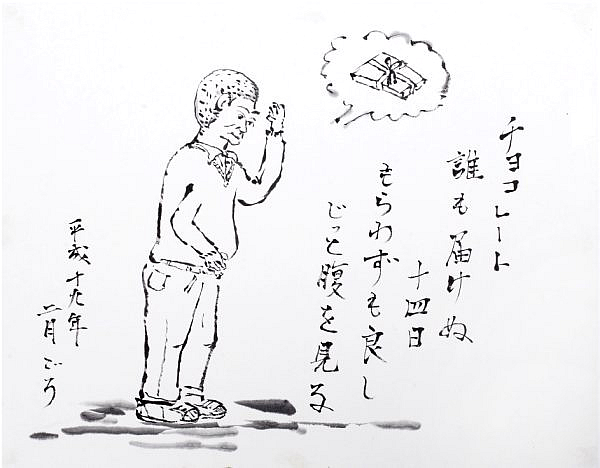 チョコレート
誰も届けぬ
十四日
もらわずも良し
じっと腹を見る
平成十九年
二月ごろ